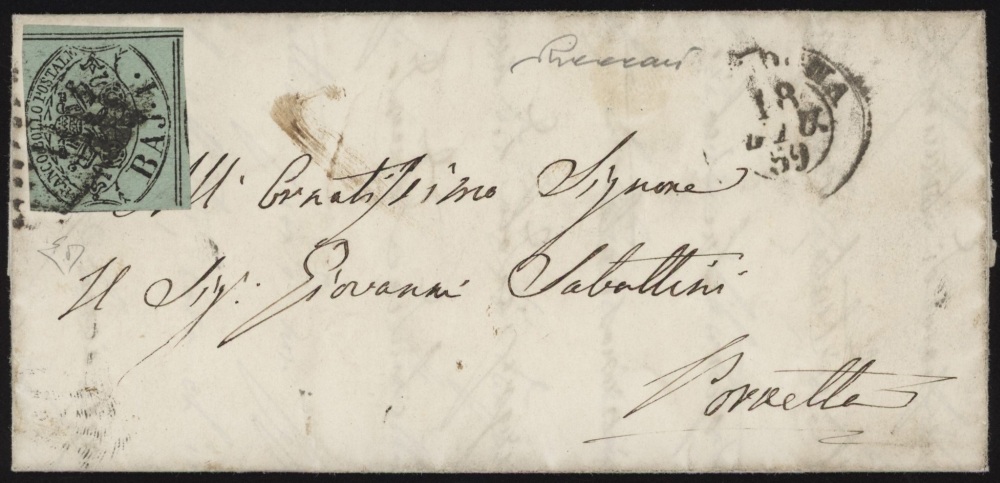 FRANCO BOLLO POSTALE
BAJ. 1.
ROMA
18
GIU.
59
All' Ornatissimo Signore
Il Sig: Giovanni Sabattini
Porretta